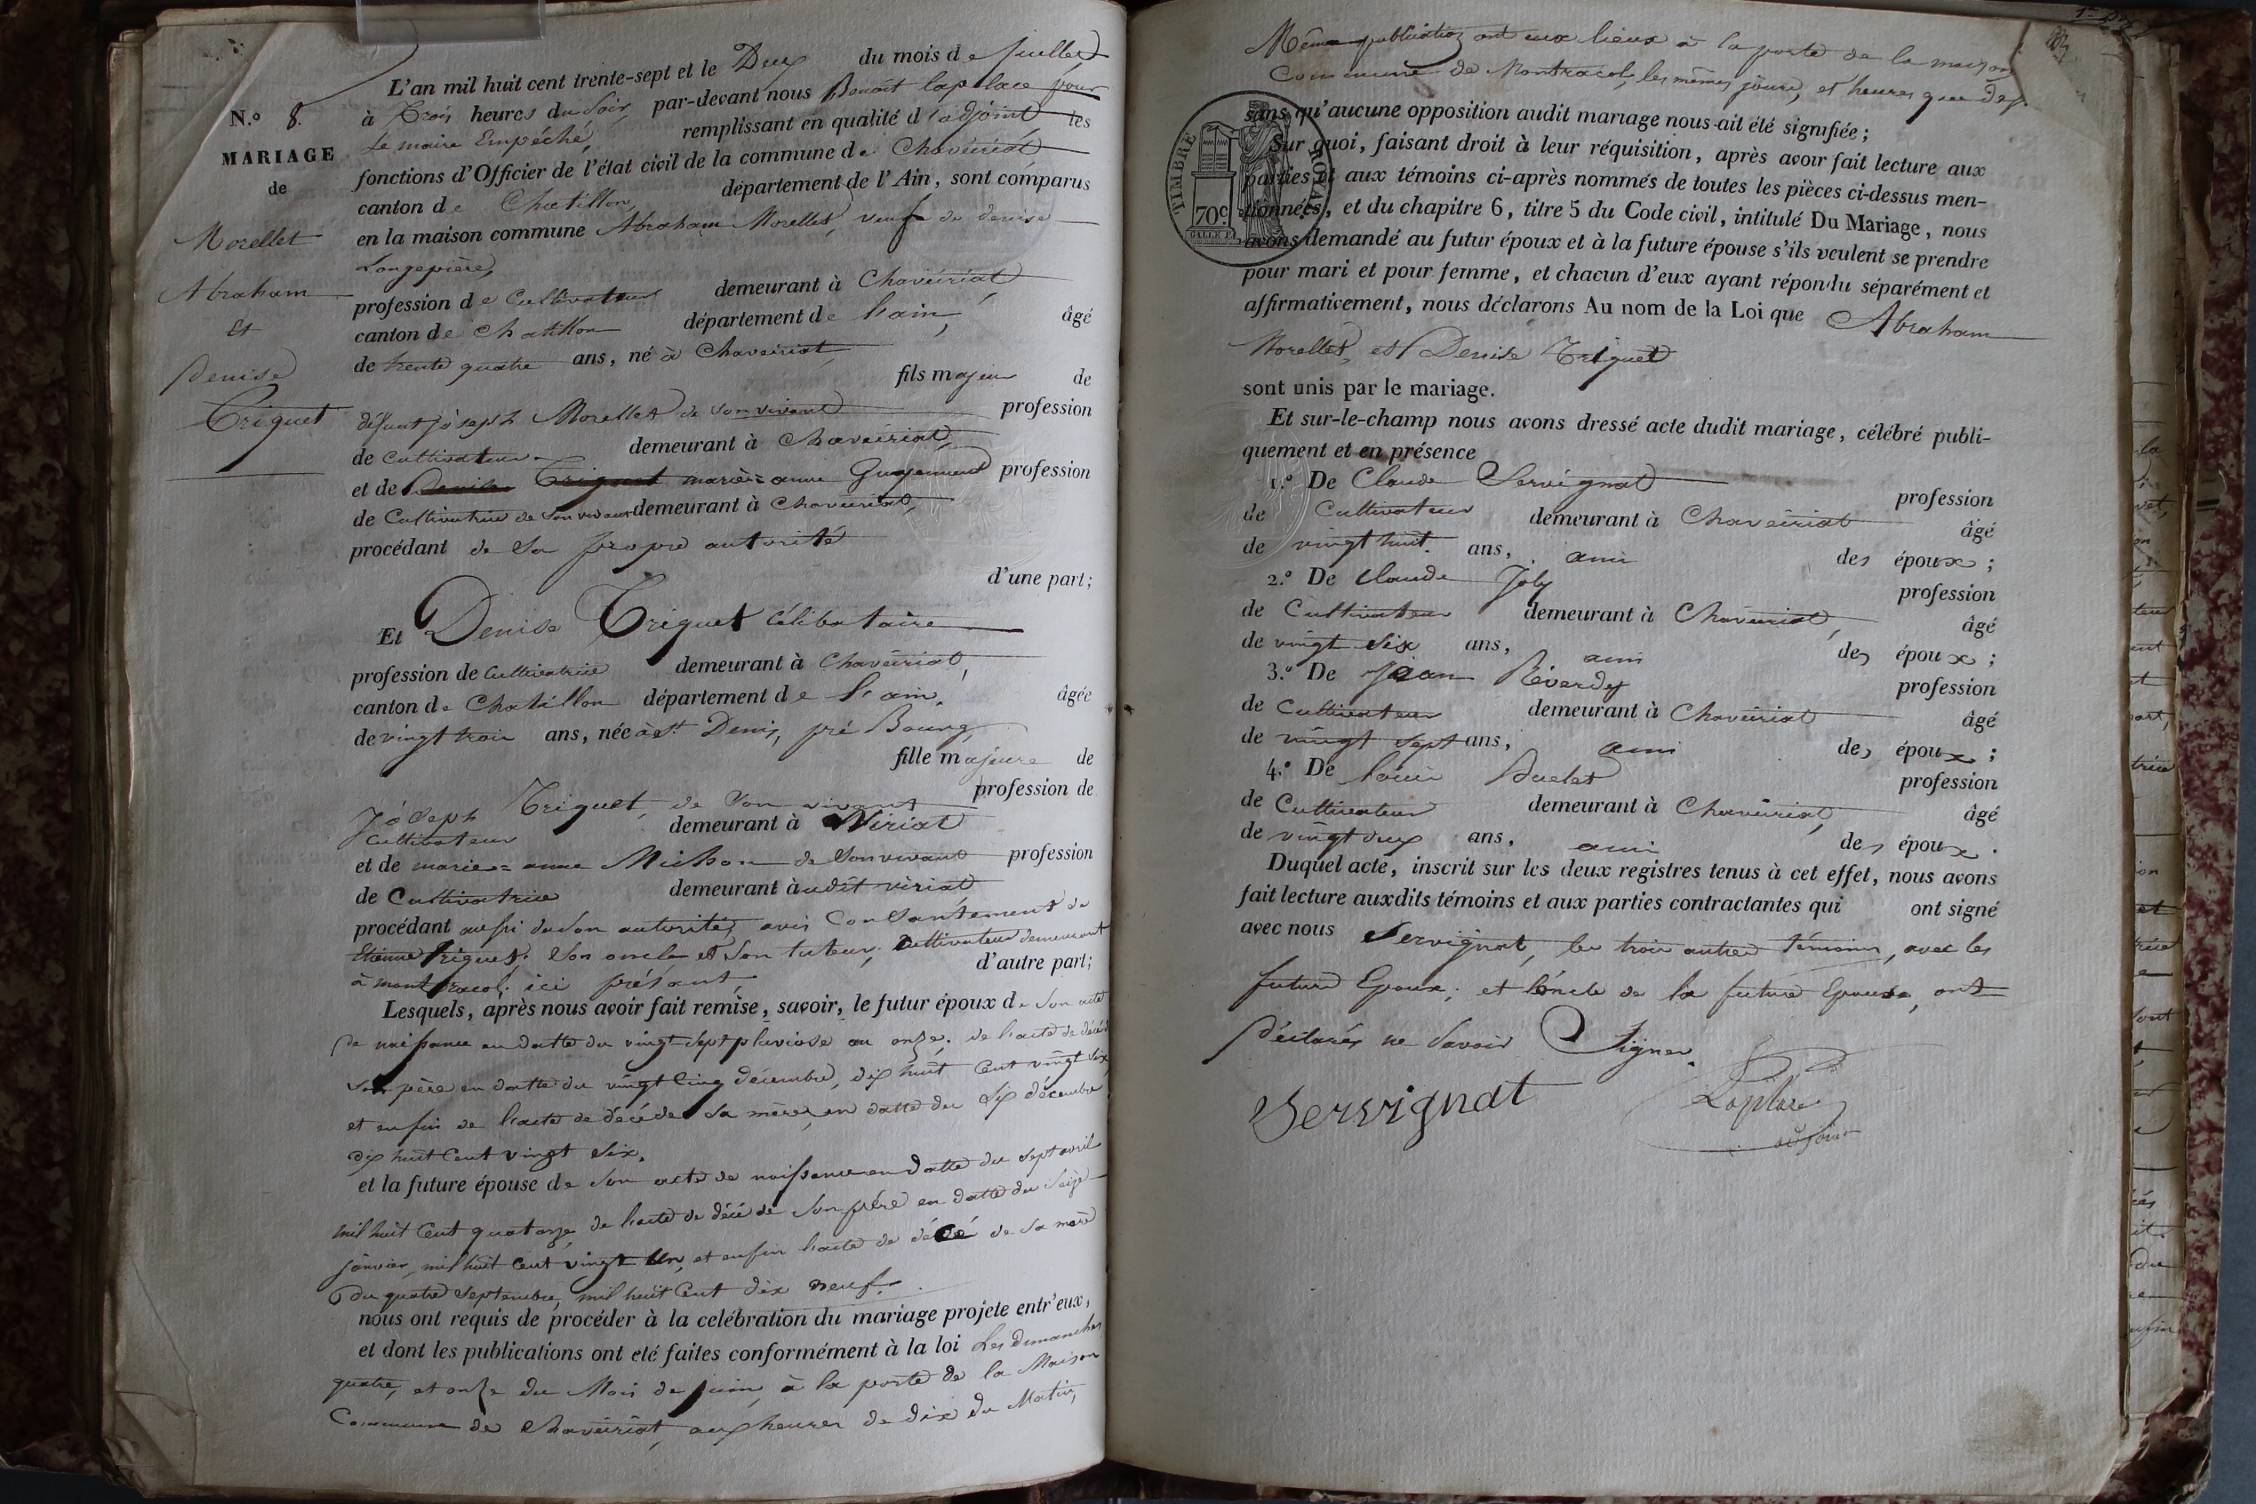 L'an mil huit cent trente-sept et le Deux du mois de juillet
N.o 8.
à Trois heures du Soir par-devant nous Benoit laplace pour
le maire Empéché remplissant en qualité d'adjoint les
MARIAGE
fonctions d'Officier de l'état civil de la commune de Chaveiriat
de
canton de Chatillon, département de l'Ain, sont comparus
en la maison commune Abraham Morellet, veuf de denise
Morellet
Longepierre,
Abraham
profession de Cultivateur demeurant à Chaveiriat
Et
canton de Chatillon département de l'ain, âgé
de trente quatre ans, né à Chaveiriat,
Denise
fils majeur de
Triquet
défunt jóseph Morellet de son vivant profession
de Cultivateur demeurant à Chaveiriat,
et de Denise Triquet marie=anne profession
de Cultivatrice de son vivant demeurant à Chaveiriat,
procédant de Sa propre autorité
d'une part;
Et Denise Triquet Célibataire
profession de Cultivatrice demeurant à Chaveiriat,
canton de Chatillon département de l'ain, âgée
de vingt trois ans, née à St. Denis, pré Bourg,
fille majeure de
Jóseph Triquet, de Son vivant profession de
Cultivateur demeurant à Viriat
et de marie=anne Michon de Son vivant profession
de Cultivatrice demeurant àudit viriat
procédant aussi de son autorité, avec Consantement de
Etienne Triquet. Son oncle et Son tuteur, Cultivateur demeurant
à montracol. ici présant, d'autre part;
Lesquels, après nous avoir fait remise, savoir, le futur époux de Son acte
De naissance en datte du vingt-Sept pluviose an onze, de l'acte de décéd
Son père en datte du vingt Cinq décembre, dix huit Cent vingt Six,
et enfin de l'acte de décé de Sa mère, en datte du Six décembre
dix huit Cent vingt Six.
et la future épouse de Son acte de naissance en datte du sept avril
mil huit Cent quatorze, de l'acte de décé de Son père en datte du Seize
janvier, mil huit Cent vingt Un, et enfin l'acte de décé de Sa mère
du quatre Septembre, mil huit Cent dix neuf.
nous ont requis de procéder à la celébration du mariage projete entr'eux,
et dont les publications ont eté faites conformément à la loi Les dimanches
quatre, et onze du Mois de juin, à la porte de la Maison
Commune de Chaveiriat, aux heures de dix du Matin,
Même publication ont eux lieux à la porte de la maison
Commune de Montracol, les mêmes jours, et heures que
TIMBRE ROYAL
70c
sans qu'aucune opposition audit mariage nous ait été signifiée;
Sur quoi, faisant droit à leur réquisition, après avoir fait lecture aux
parties et aux témoins ci-après nommés de toutes les pièces ci-dessus men-
tionnées, et du chapitre 6, titre 5 du Code civil, intitulé Du Mariage, nous
avons demandé au futur époux et à la future épouse s'ils veulent se prendre
pour mari et pour femme, et chacun d'eux ayant répondu séparément et
affirmativement, nous déclarons Au nom de la Loi que Abraham
Morellet, et Denise Triquet
sont unis par le mariage.
Et sur-le-champ nous avons dressé acte dudit mariage, célébré publi-
quement et en présence
1.o De Claude Servignat profession
de Cultivateur demeurant à Chaveiriat âgé
de vingt huit. ans, ami des époux;
2.o De Claude Joly profession
de Cultivateur demeurant à Chaveiriat, âgé
de vingt Six ans, ami des époux;
3.o De Jean Réverdy profession
de Cultivateur demeurant à Chaveiriat âgé
de vingt sept ans, ami des époux;
4.o De louis Buclet profession
de Cultivateur demeurant à Chaveiriat, âgé
de vingt deux ans, ami des époux.
Duquel acte, inscrit sur les deux registres tenus à cet effet, nous avons
fait lecture auxdits témoins et aux parties contractantes qui ont signé
avec nous Servignat, les trois autres témoins, avec les
futurs Epoux, et l'oncle de la future Epouse, ont
Déclarés ne Savoir Signer.
Servignat Laplace
adjoint